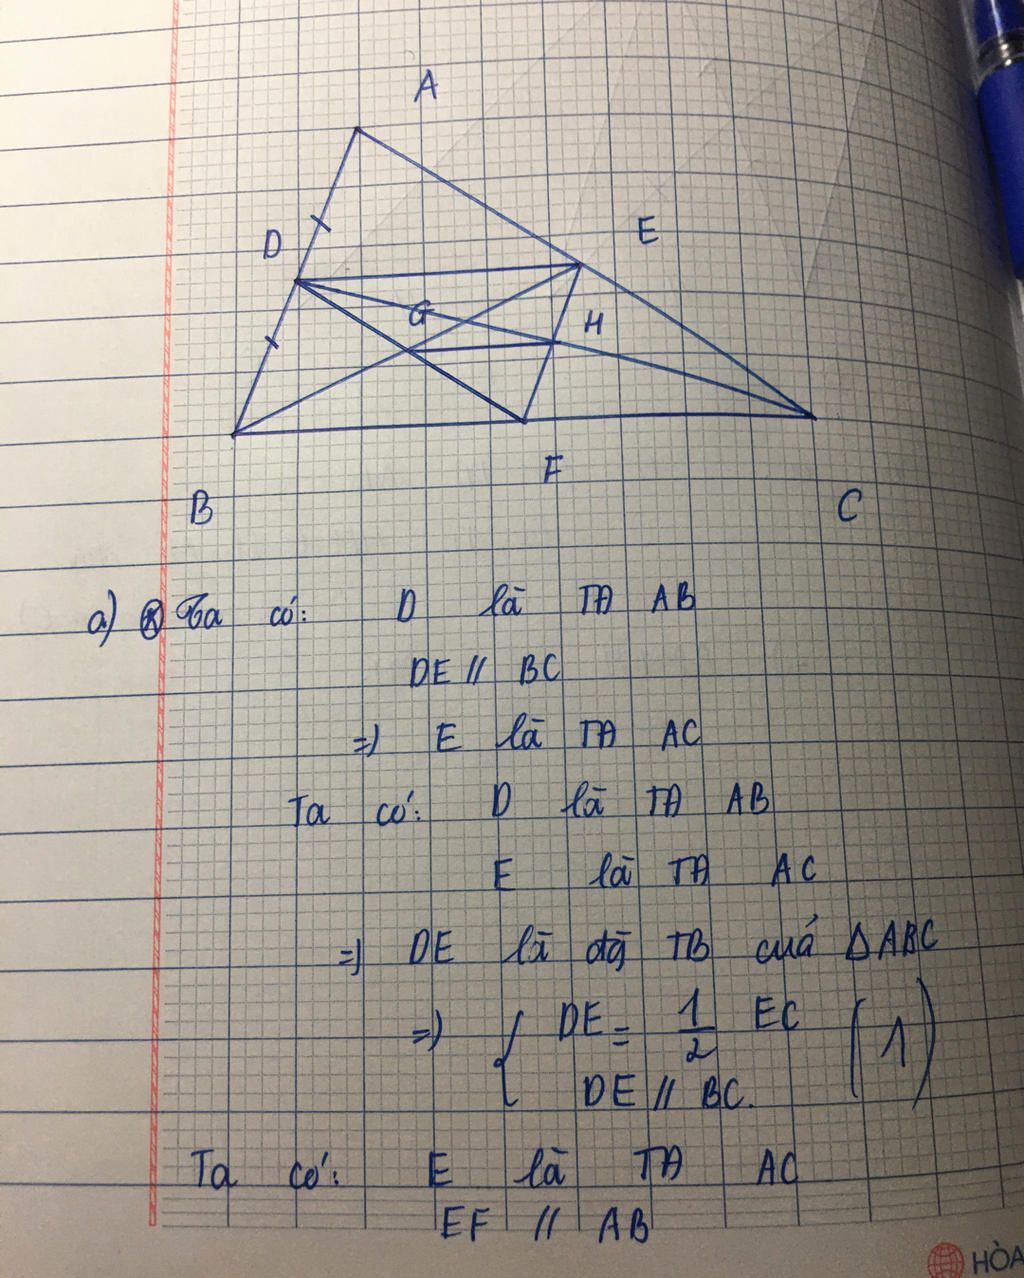 A
D
E
G
H
F
B
C
a) Ta có: D là TĐ AB
DE // BC
=) E là TĐ AC
Ta có: D là TĐ AB
E là TĐ AC
=) DE là đg TB cuả ΔABC
=) { DE = 1/2 EC (1)
DE // BC.
Ta có: E là TĐ AC
EF // AB
HÒA